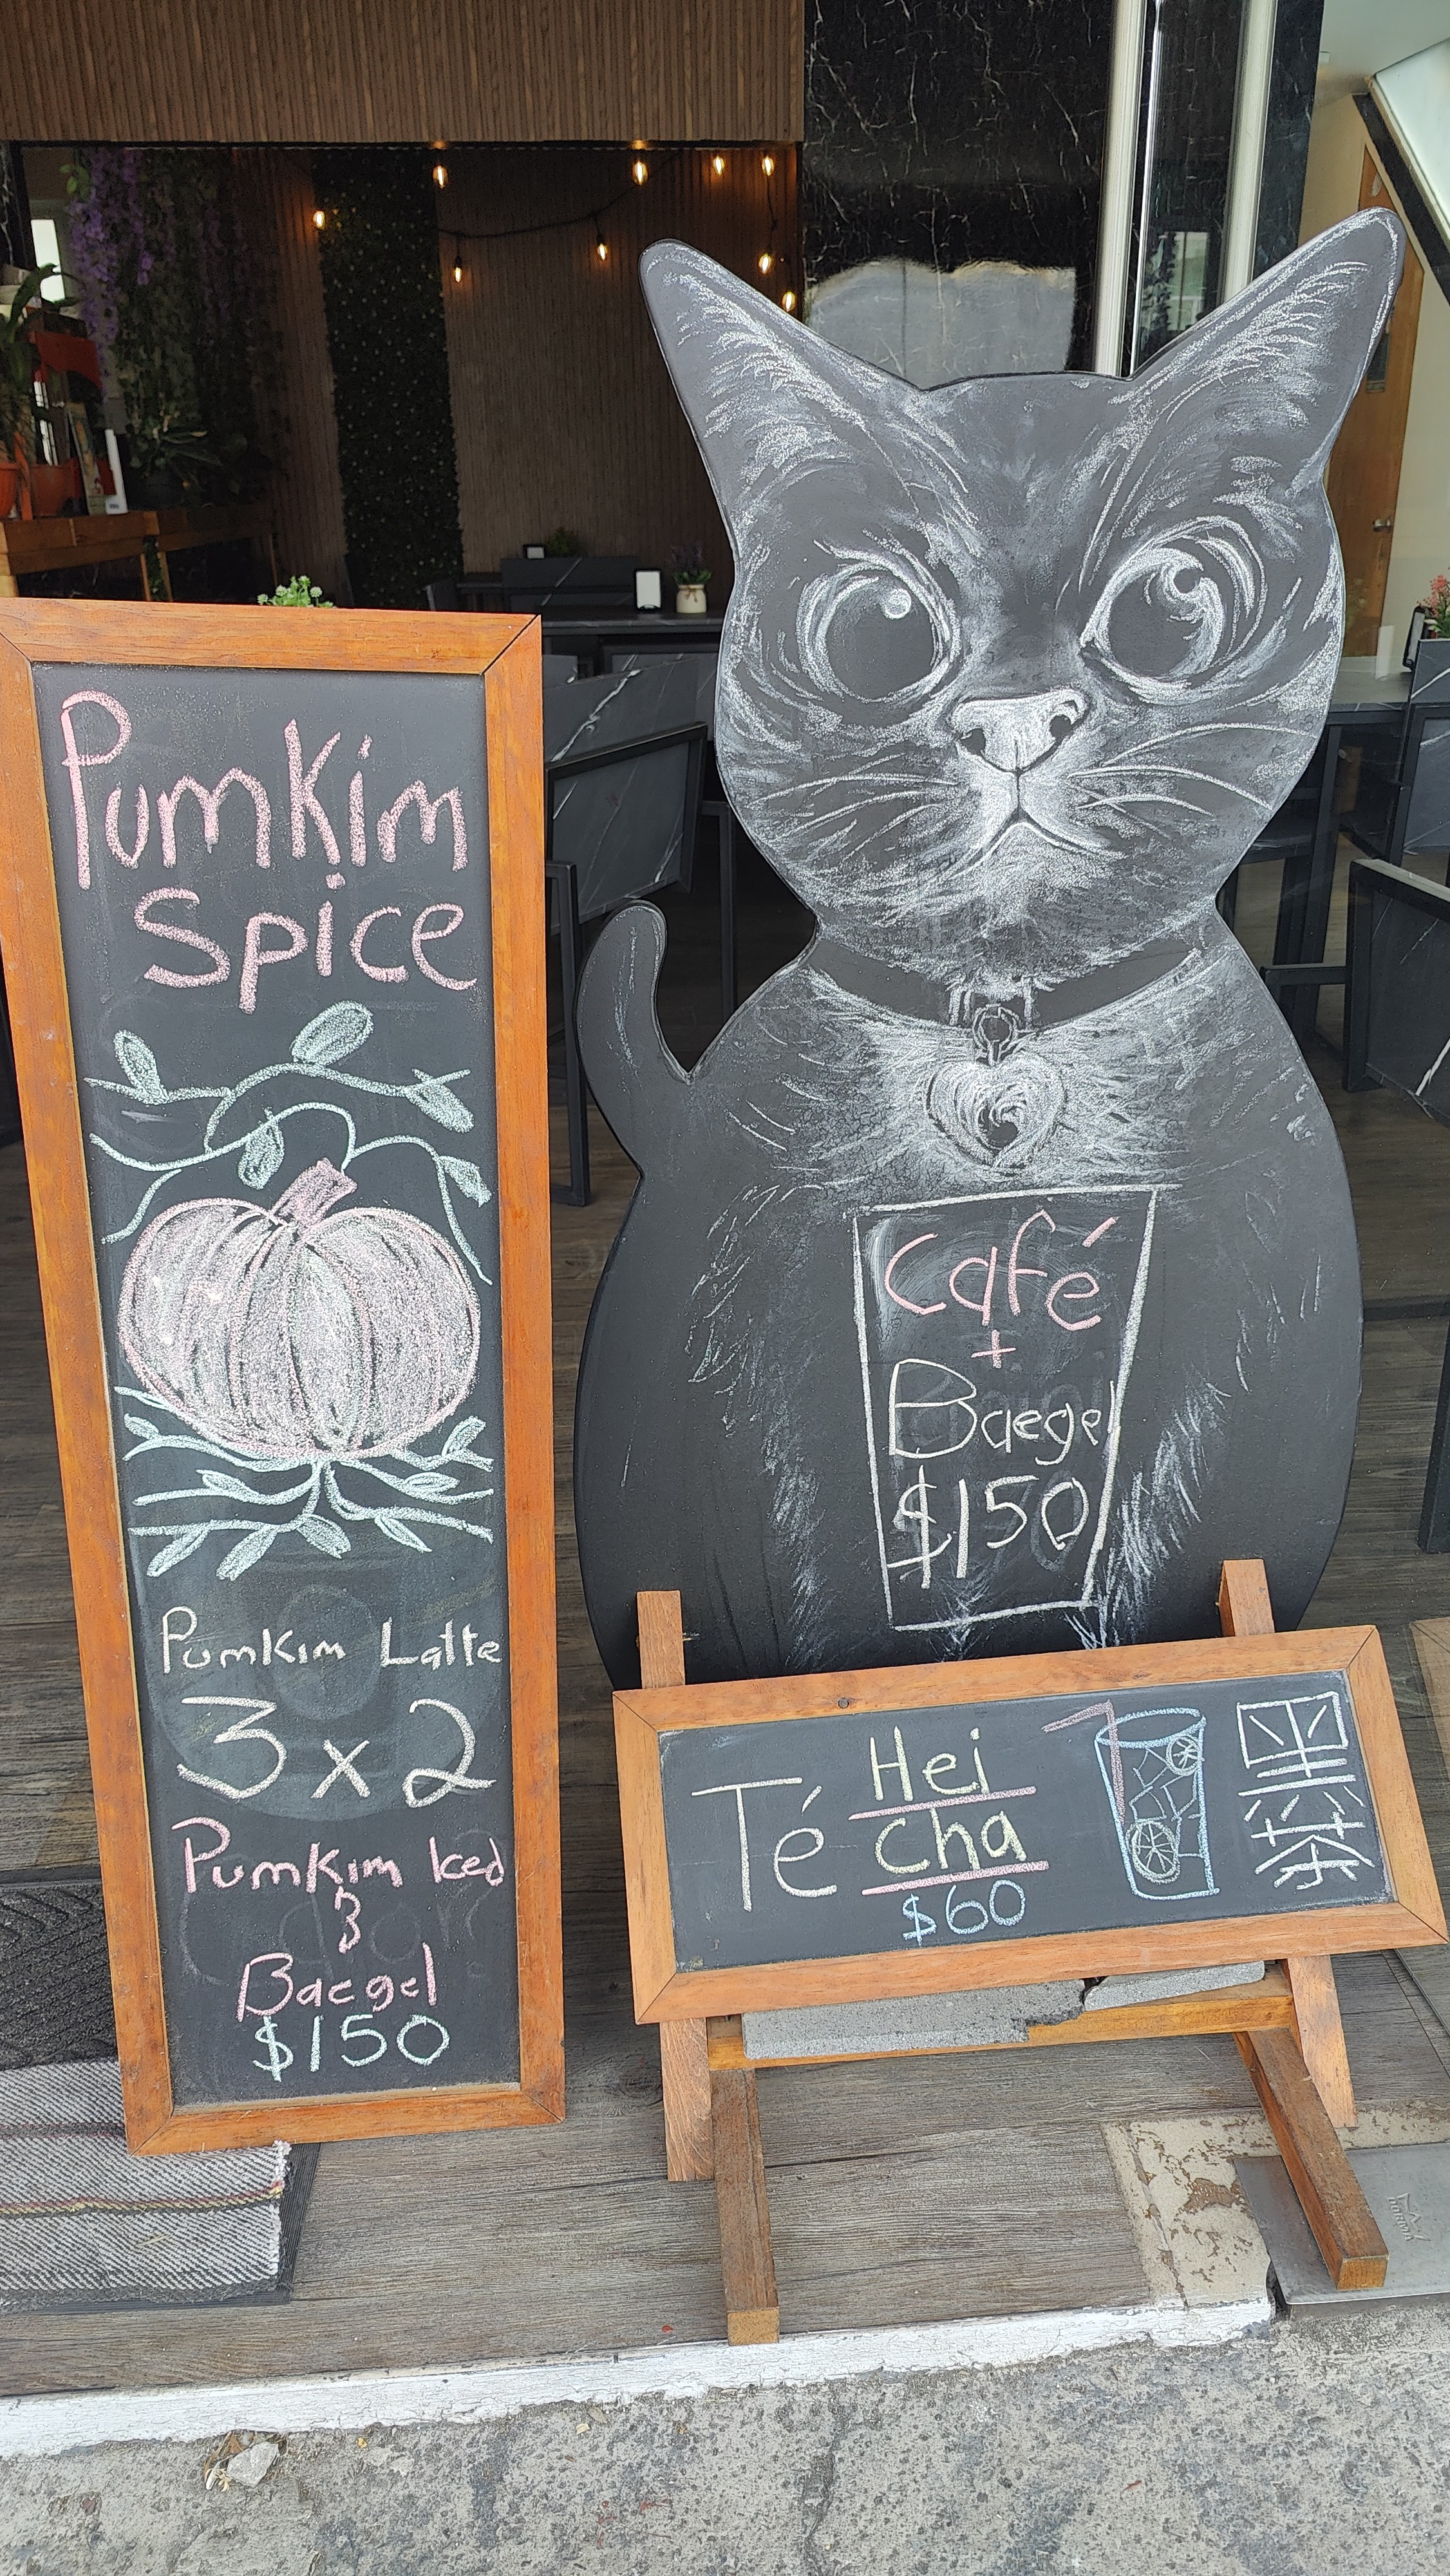 Pumkim
Spice
Pumkim Latte
3 x 2
Pumkim Iced
&
Baegel
$150
Café
+
Baegel
$150
Té
Hei
cha
$60
黑
茶